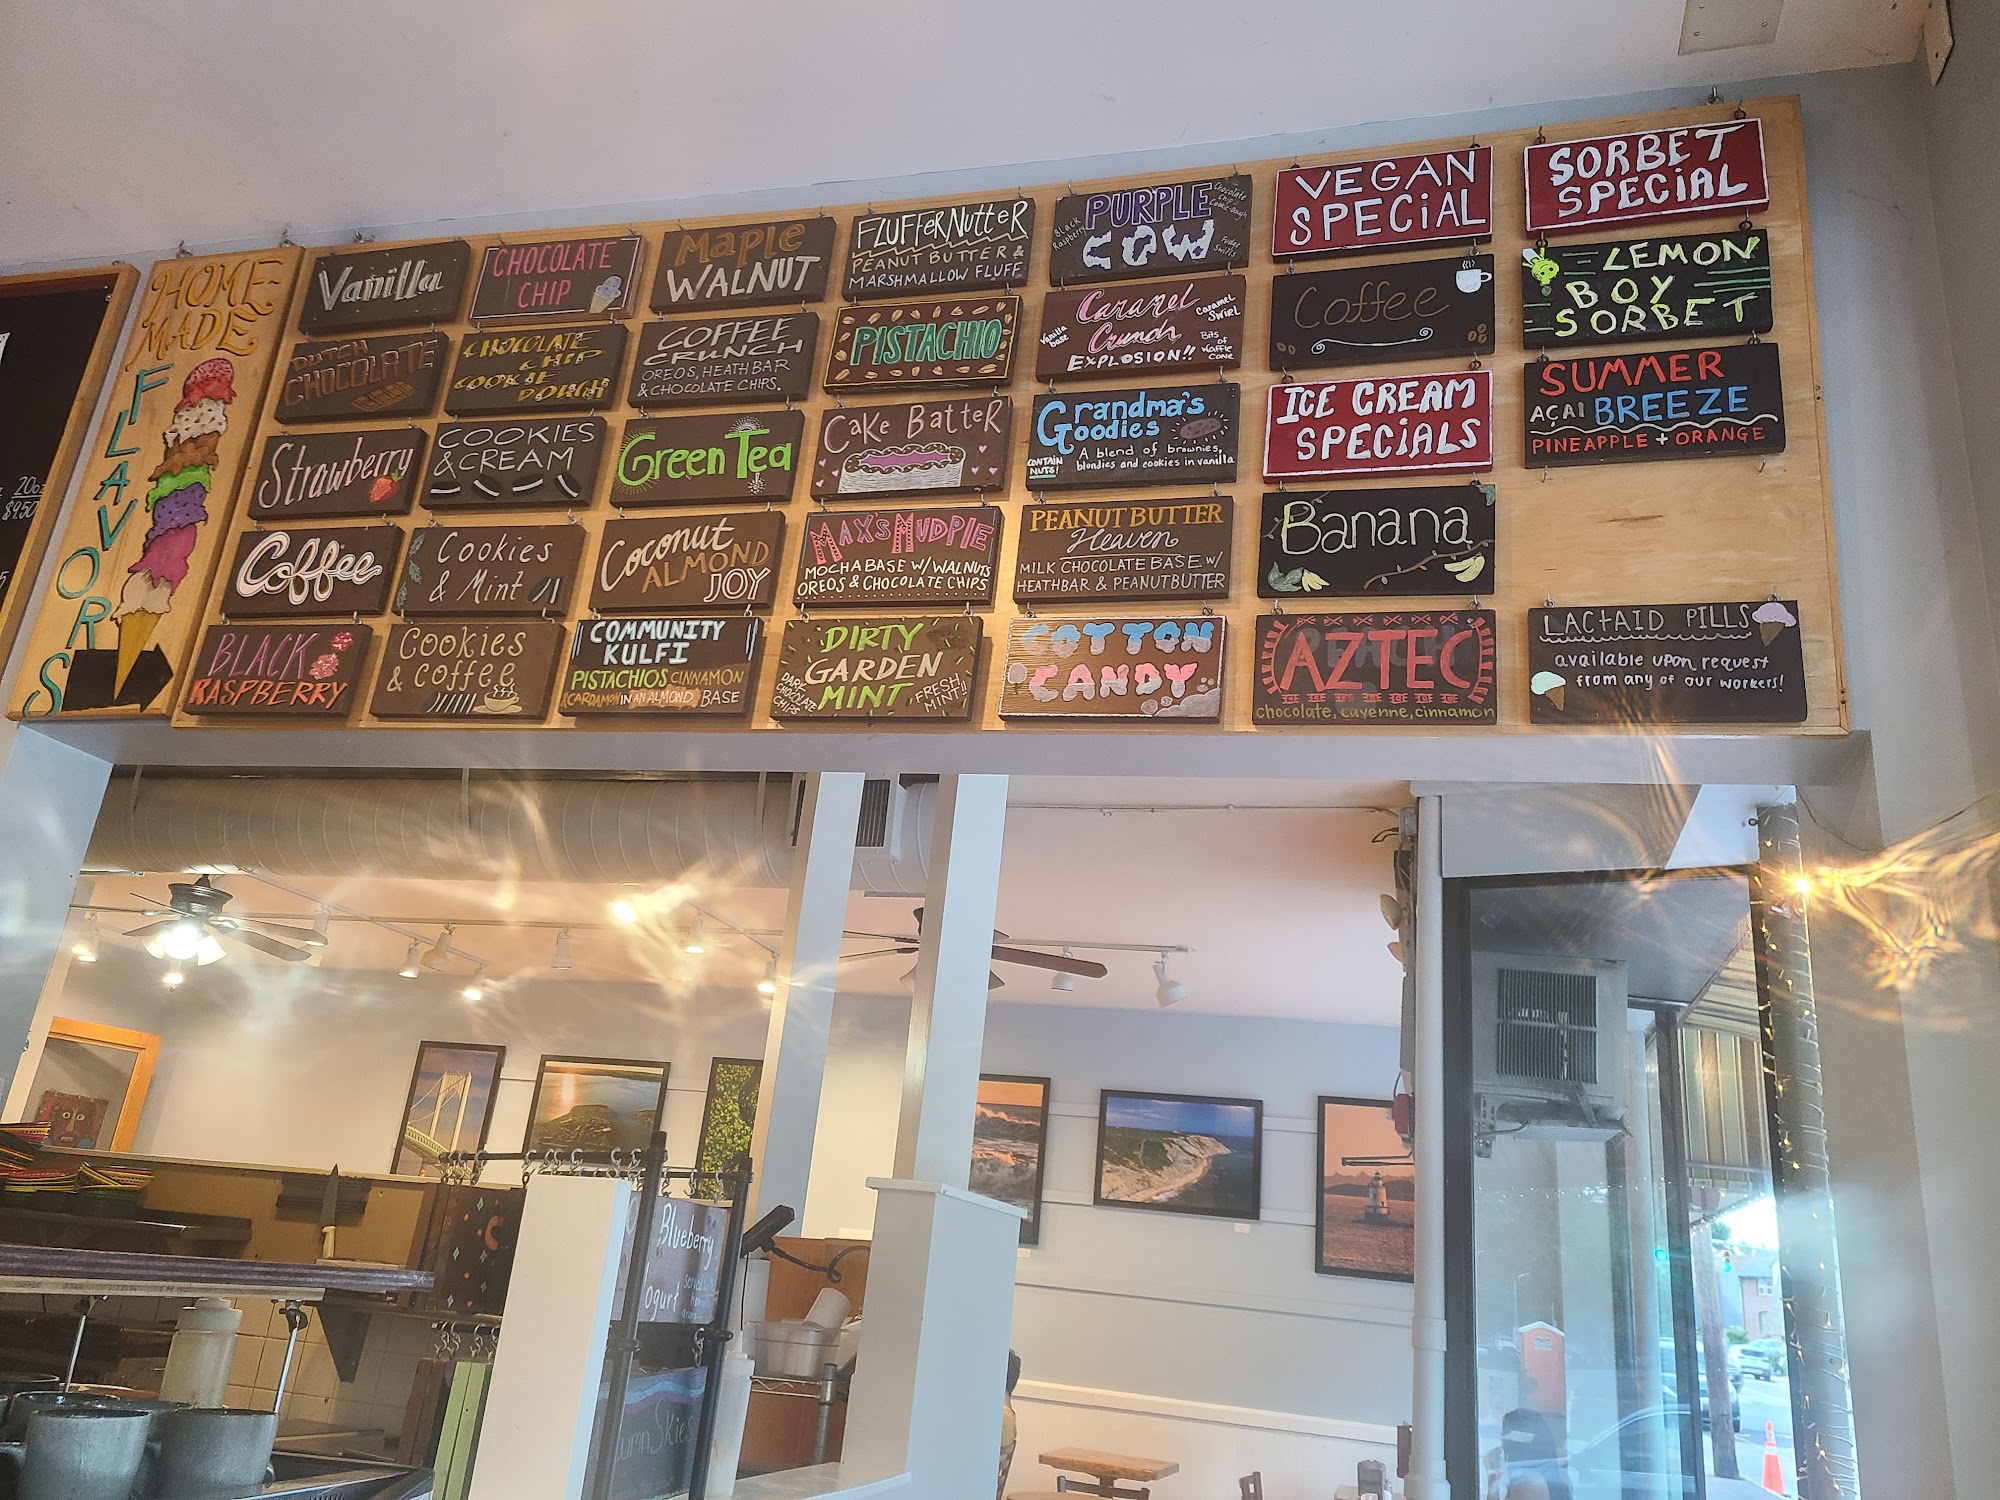 HOME-
MADE
FLAVORS
20oz
$9.50
Vanilla
DUTCH
CHOCOLATE
Strawberry
Coffee
BLACK
RASPBERRY
CHOCOLATE
CHIP
CHOCOLATE
CHIP
COOKIE
DOUGH
COOKIES
& CREAM
Cookies
& Mint
Cookies
& coffee
Maple
WALNUT
COFFEE
CRUNCH
OREOS, HEATH BAR
& CHOCOLATE CHIPS.
Green Tea
Coconut
ALMOND
JOY
COMMUNITY
KULFI
PISTACHIOS CINNAMON
CARDAMON IN AN ALMOND BASE
FLUFFERNUTTER
PEANUT BUTTER &
MARSHMALLOW FLUFF
PISTACHIO
CAKE BATTER
MAX'S MUDPIE
MOCHA BASE W/ WALNUTS
OREOS & CHOCOLATE CHIPS
DIRTY
GARDEN
MINT
DARK
CHOCOLATE
CHIPS
FRESH
MINT!!
PURPLE
COW
Black
Raspberry
Chocolate
Chip
Cookie-Dough
Fudge
Swirls
Caramel
Crunch
EXPLOSION!!
Vanilla
base
Caramel
Swirl
Bits
of
Waffle
Cone
Grandma's
Goodies
CONTAIN
NUTS!
A blend of brownies,
blondies and cookies in vanilla
PEANUT BUTTER
Heaven
MILK CHOCOLATE BASE W/
HEATHBAR & PEANUTBUTTER
COTTON
CANDY
VEGAN
SPECiAL
Coffee
ICE CREAM
SPECiALS
Banana
AZTEC
chocolate, cayenne, cinnamon
SORBET
SPECiAL
LEMON
BOY
SORBET
SUMMER
AÇAI BREEZE
PINEAPPLE + ORANGE
LACTAID PILLS
available upon request
from any of our workers!
Blueberry